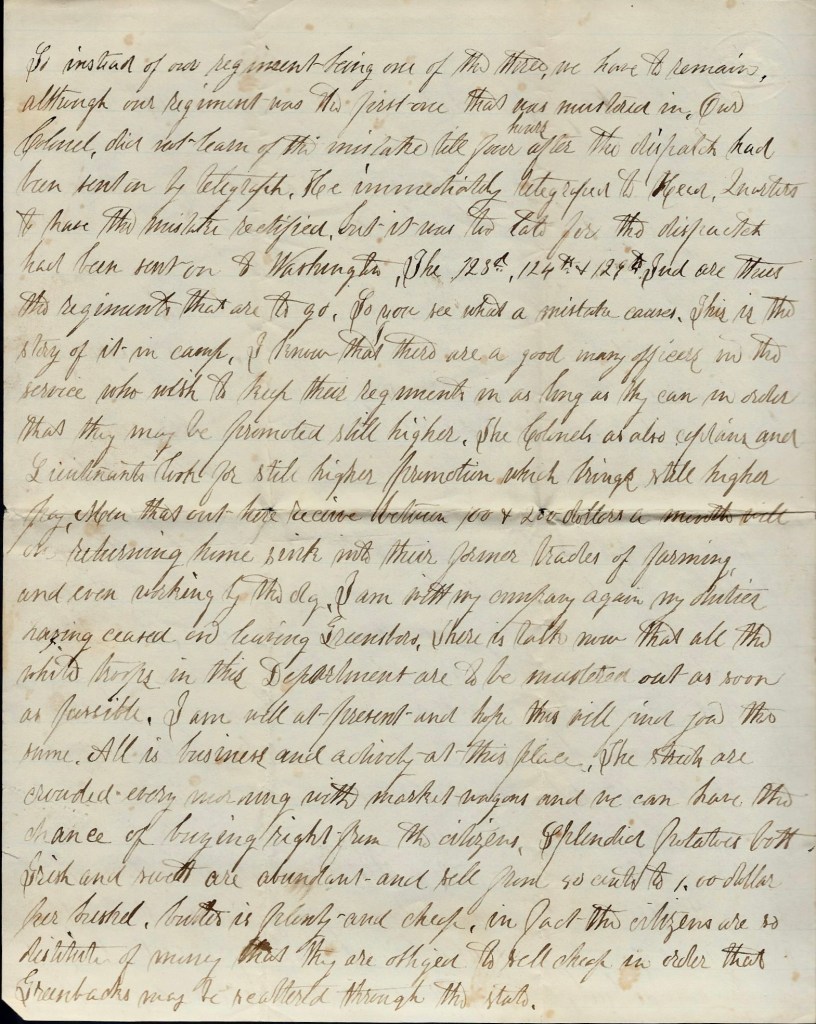 So instead of our regiment being one of the three, we have to remain,
although our regiment was the first one that was mustered in. Our
hours
Colonel, did not learn of the mistake till four after the dispatch had
been sent on by telegraph. He immediately telegraped to Head, Quarters
to have the mistake rectified, but it was too late for the dispatch
had been sent on to Washington. The 123d, 124th & 129th Ind are thus
the regiments that are to go. So you see what a mistake causes. This is the
story of it in camp. I know that there are a good many officers in the
service who wish to keep their regiments in as long as they can in order
that they may be promoted still higher. The Colonels as also captains and
Lieutenants look for still higher promotion which brings still higher
pay. Men that out here receive between 100 & 200 dollars a month will
on returning home sink into their former trades of farming,
and even working by the day. I am with my company again my duties
having ceased on leaving Greensboro. There is talk now that all the
white troops in this Department are to be mustered out as soon
as possible. I am well at present and hope this will find you the
same. All is business and activity at this place. The streets are
crowded every morning with market wagons and we can have the
chance of buying right from the citizens. Splendid potatoes both
Irish and sweet are abundant and sell from 50 cents to 1.00 dollar
per bushel. butter is plenty and cheap, in fact the citizens are so
destitute of money that they are obliged to sell cheap in order that
Greenbacks may be scattered through the state.